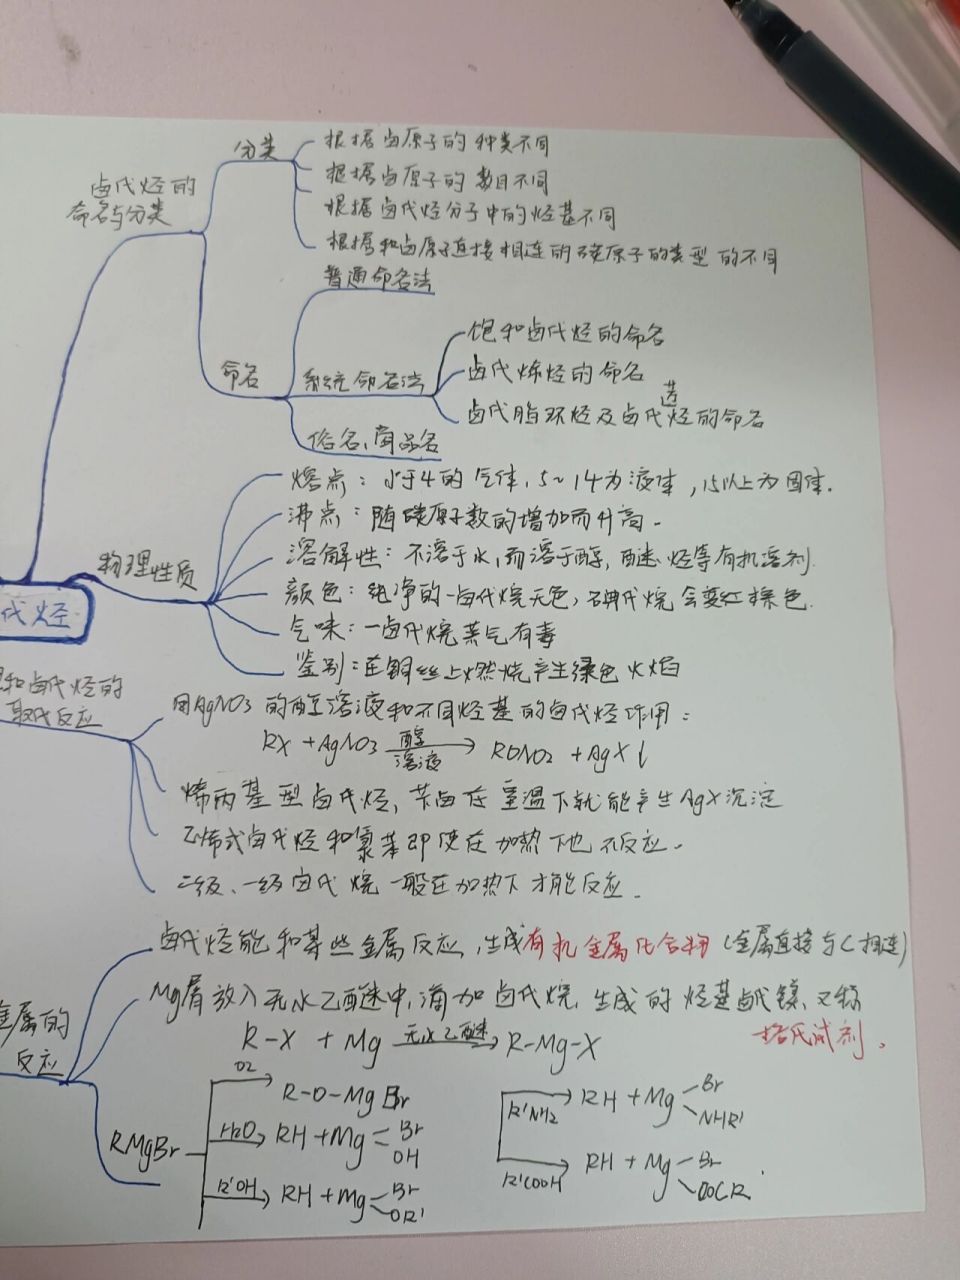 卤代烃的
命名与分类
分类
根据卤原子的种类不同
根据卤原子的数目不同
根据卤代烃分子中的烃基不同
根据和卤原子直接相连的碳原子的类型的不同
命名
普通命名法
系统命名法
饱和卤代烃的命名
卤代烯烃的命名
卤代脂环烃及卤代芳烃的命名
俗名、商品名
代烃
物理性质
熔点：小于4的气体，5~14为液体，15以上为固体.
沸点：随碳原子数的增加而升高.
溶解性：不溶于水，而溶于醇，醚，烃等有机溶剂.
颜色：纯净的一卤代烷无色，碘代烷会变红棕色.
气味：一卤代烷蒸气有毒
鉴别：在铜丝上燃烧产生绿色火焰
和卤代烃的
取代反应
用AgNO3的醇溶液和不同烃基的卤代烃作用：
RX + AgNO3 醇溶液→ RONO2 + AgX↓
烯丙基型卤代烃，苄卤在室温下就能产生AgX沉淀
乙烯式卤代烃和氯苯即使在加热下也不反应.
二级、一级卤代烷一般在加热下才能反应.
金属的
反应
卤代烃能和某些金属反应，生成有机金属化合物（金属直接与C相连）
Mg屑放入无水乙醚中，滴加卤代烷，生成的烃基卤代镁，又称
格氏试剂.
R-X + Mg 无水乙醚→ R-Mg-X
RMgBr
O2→ R-O-MgBr
H2O→ RH + Mg Br OH
R'OH→ RH + Mg Br OR'
R'NH2→ RH + Mg Br NHR'
R'COOH→ RH + Mg Br OOCR